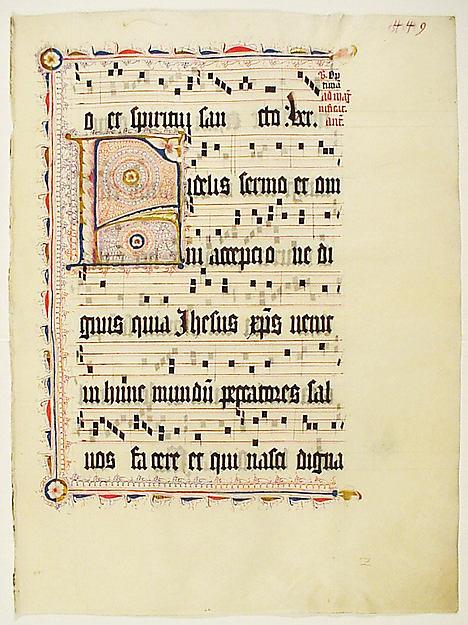 449
o et spiritui san cto
ad mag
nificat.
ant.
Fidelis sermo et om
ni acceptio ne di
gnus quia Jhesus xp̄s uenit
in hunc mundū peccatores sal
uos fa cere et qui nasci digna